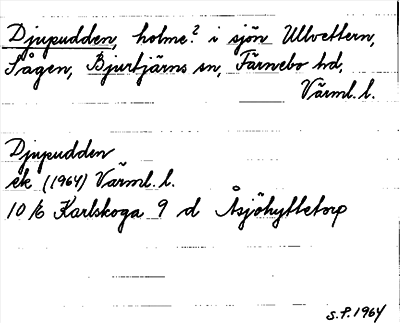 Djupudden, holme? i sjön Ullvettern,
Sågen, Bjurtjärns sn, Färnebo hd,
Värml. l.
Djupudden
ek (1964) Värml. l.
10/6 Karlskoga 9 d Åsjöhyttetorp
S.P. 1964